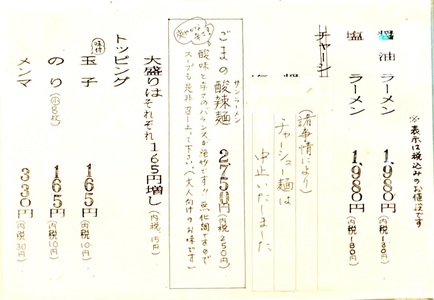 ※表示は税込みのお値段です
醤油ラーメン 1,980円(内税180円)
塩ラーメン 1,980円(内税180円)
チャーシ
(諸事情により)
チャーシュー麺は
中止いたしました
サンラーメン
ごまの酸辣麺 2,750円(内税250円)
酸味と辛さのバランスが絶妙です!! 無化調ですので
スープも是非召し上って下さい。(大人向けのお味です)
大盛りはそれぞれ165円増し(内税15円)
トッピング
味付
玉子 165円(内税10円)
のり(8枚) 165円(内税10円)
メンマ 330円(内税30円)